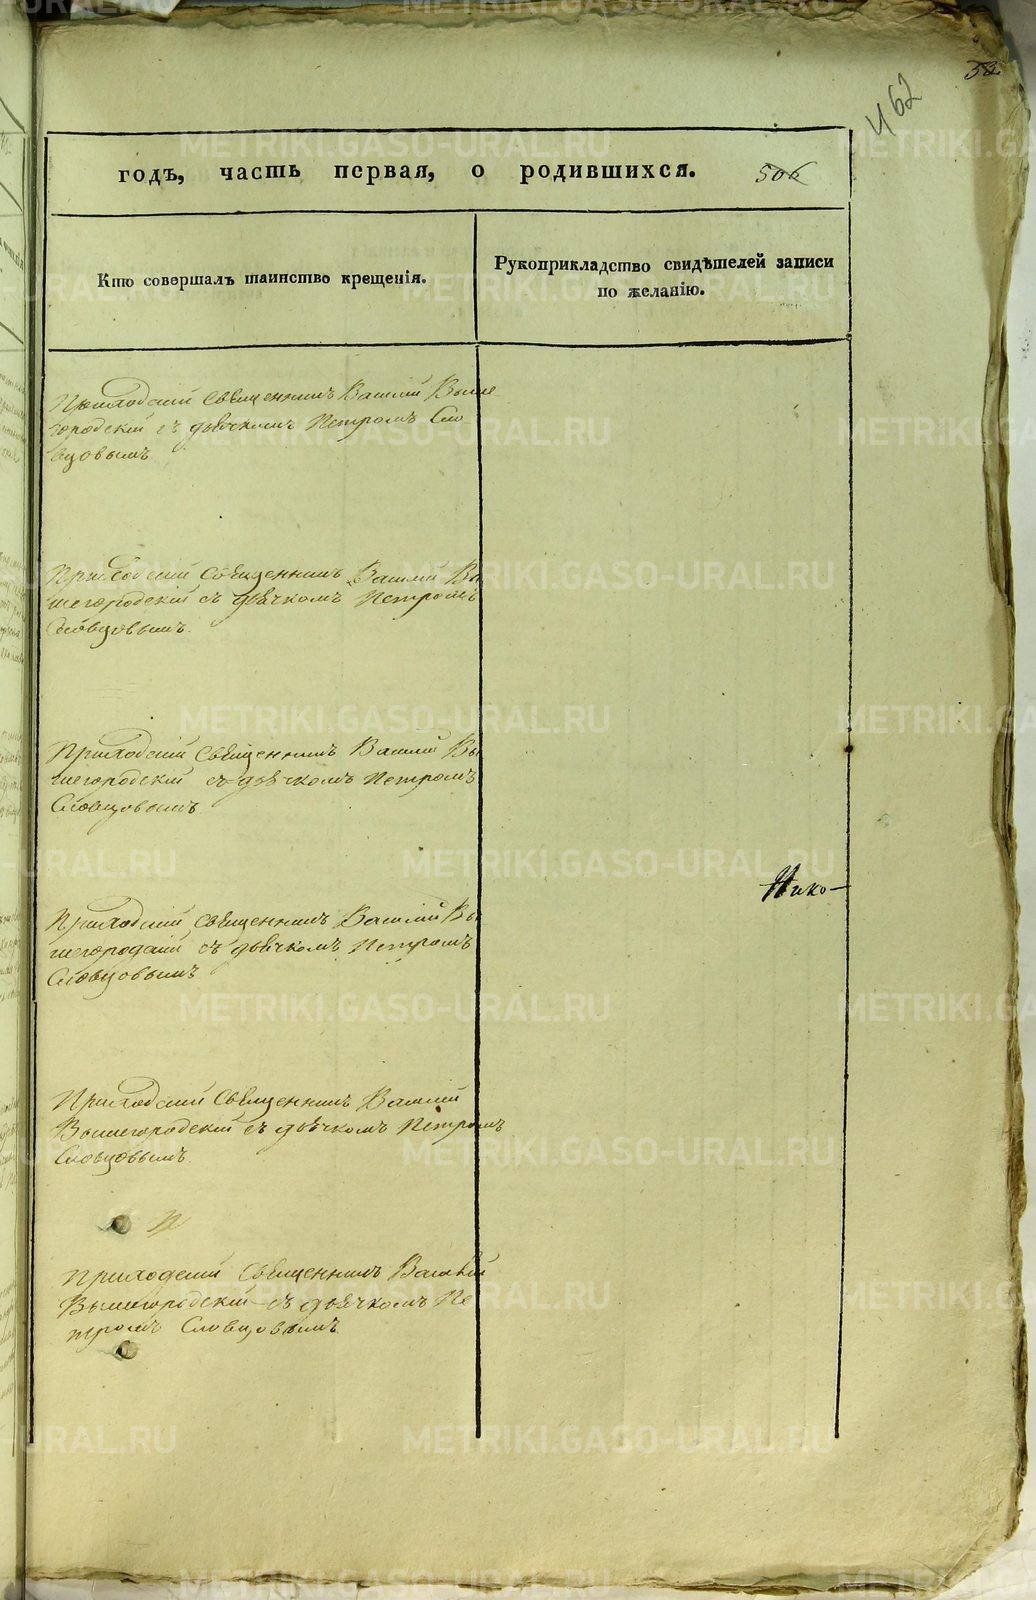 58
462
годъ, часть первая, о родившихся. 506
Кто совершалъ таинство крещенія.
Рукоприкладство свидѣтелей записи
по желанію.
Приходскій Священникъ Василій Выше
городскій съ дьячкомъ Петромъ Сло
вцовымъ.
Приходскій Священникъ Василій Вы
шегородскій съ дьячкомъ Петромъ
Словцовымъ.
Приходскій Священникъ Василій Вы
шегородскій съ дьячкомъ Петромъ
Словцовымъ
Нико-
Приходскій Священникъ Василій Вы
шегородскій съ дьячкомъ Петромъ
Словцовымъ
Приходскій Священникъ Василій
Вышегородскій съ дьячкомъ Петромъ
Словцовымъ.
Приходскій Священникъ Василій
Вышегородскій съ дьячкомъ Пе
тромъ Словцовымъ.
METRIKI.GASO-URAL.RU